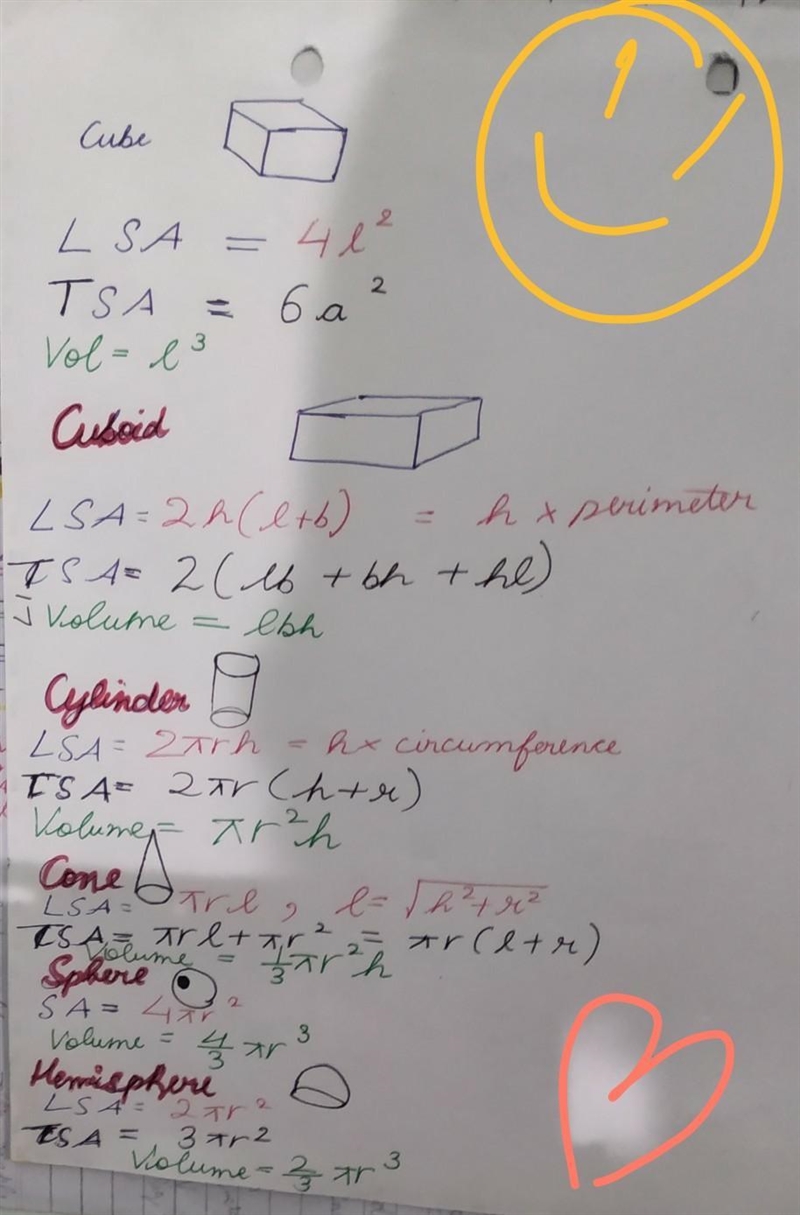 Cube
LSA = 4l²
TSA = 6a²
Vol = l³
Cuboid
LSA = 2h(l+b) = h × perimeter
TSA = 2(lb + bh + hl)
Volume = lbh
Cylinder
LSA = 2πrh = h× circumference
TSA = 2πr(h+r)
Volume = πr²h
Cone
LSA = πrl, l = √(h²+r²)
TSA = πrl + πr² = πr(l+r)
Volume = 1/3 πr²h
Sphere
SA = 4πr²
Volume = 4/3 πr³
Hemisphere
LSA = 2πr²
TSA = 3πr²
Volume = 2/3 πr³